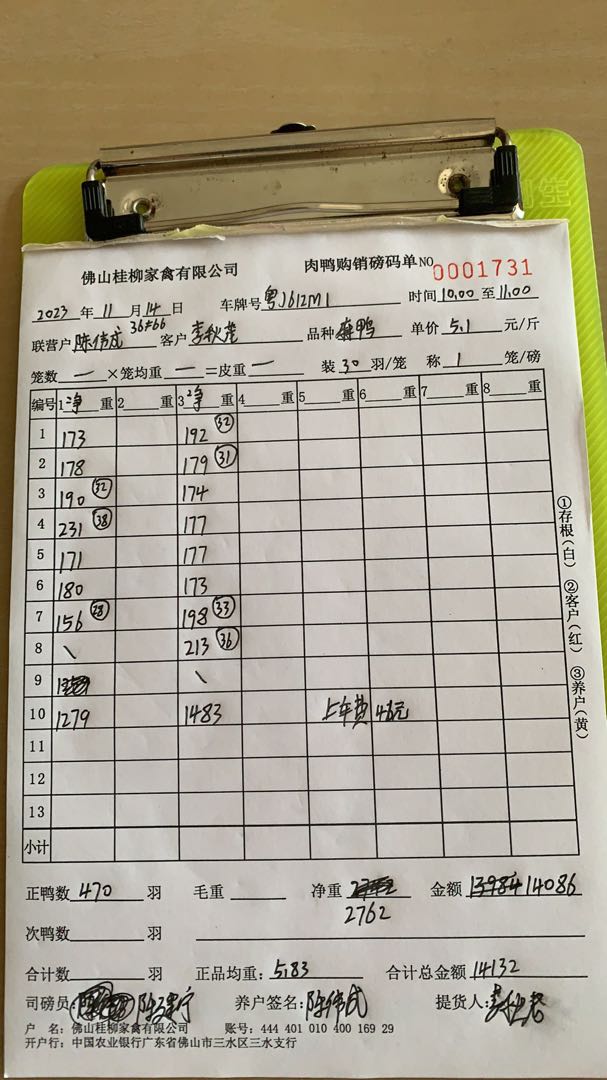 佛山桂柳家禽有限公司 肉鸭购销磅码单 NO 0001731
2023 年 11 月 14 日 车牌号 粤J612M1 时间 10.00 至 11.00
36#66
联营户 陈伟成 客户 李秋 品种 麻鸭 单价 5.1 元/斤
笼数 一 ×笼均重 一 =皮重 一 装 30 羽/笼 称 1 笼/磅
编号 1 净 重 2 重 3 净 重 4 重 5 重 6 重 7 重 8 重
1 173 192 32
2 178 179 31
3 190 32 174
4 231 38 177
5 171 177
6 180 173
7 156 28 198 33
8 \ 213 36
9 \
10 1279 1483 上车费 46元
11
12
13
小计
①存根(白) ②客户(红) ③养户(黄)
正鸭数 470 羽 毛重 净重 2762 金额 14086
次鸭数 羽
合计数 羽 正品均重: 5.83 合计总金额 14132
司磅员: 养户签名: 陈伟成 提货人:
户 名: 佛山桂柳家禽有限公司 账号: 444 401 010 400 169 29
开户行: 中国农业银行广东省佛山市三水区三水支行